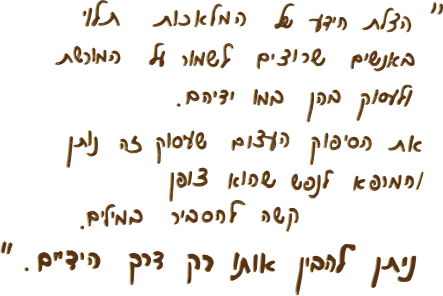 "הצלת הידע של המלאכות תלוי
באנשים שרוצים לשמור על המורשת
ולעסוק בהן במו ידיהם.
את הסיפוק העצום שעסוק זה נותן
והמרפא לנפש שהוא צופן
קשה להסביר במילים.
ניתן להבין אותו רק דרך הידיים."